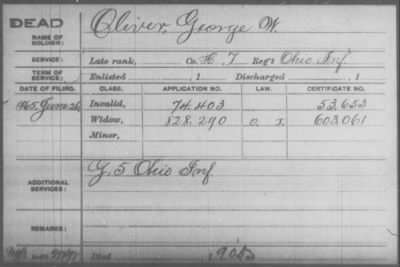 DEAD
NAME OF SOLDIER: Oliver, George W.
SERVICE: Late rank, Co. H, 7 Reg't Ohio Inf.
TERM OF SERVICE: Enlisted , 1 Discharged , 1
DATE OF FILING. CLASS. APPLICATION NO. LAW. CERTIFICATE NO.
1865, June 26 Invalid, 74.403 53.653
Widow, 828.290 O. J. 603.061
Minor,
ADDITIONAL SERVICES: G. 5 Ohio Inf.
REMARKS:
Died , 190